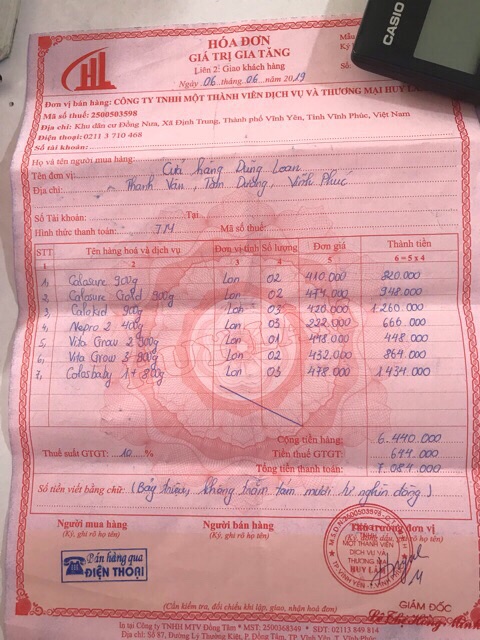 HÓA ĐƠN
GIÁ TRỊ GIA TĂNG
Liên 2: Giao khách hàng
Ngày 06 tháng 06 năm 2019
Mẫu
Ký
Số
CASIO
HL
Đơn vị bán hàng: CÔNG TY TNHH MỘT THÀNH VIÊN DỊCH VỤ VÀ THƯƠNG MẠI HUY
Mã số thuế: 2500503598
Địa chỉ: Khu dân cư Đồng Nưa, Xã Định Trung, Thành phố Vĩnh Yên, Tỉnh Vĩnh Phúc, Việt Nam
Điện thoại: 0211 3 710 468
Số tài khoản:
Họ và tên người mua hàng:
Tên đơn vị: Cửa hàng Dũng Loan
Địa chỉ: Thanh Vân, Tam Dương, Vĩnh Phúc
Số Tài khoản: Tại
Hình thức thanh toán: TM Mã số thuế:
STT Tên hàng hoá và dịch vụ Đơn vị tính Số lượng Đơn giá Thành tiền
1 2 3 4 5 6 = 5 x 4
1, Calosure 900g Lon 02 410.000 820.000
2, Calosure Gold 900g Lon 02 474.000 948.000
3, Calokid 900g Lon 03 420.000 1.260.000
4, Nepro 2 400g Lon 03 222.000 666.000
5, Vita Grow 2 900g Lon 01 448.000 448.000
6, Vita Grow 3 900g Lon 02 432.000 864.000
7, Colosbaby 1+ 800g Lon 03 478.000 1.434.000
HUY LÂM
Cộng tiền hàng: 6.440.000
Thuế suất GTGT: 10 % Tiền thuế GTGT: 644.000
Tổng tiền thanh toán: 7.084.000
Số tiền viết bằng chữ: (Bảy triệu, không trăm tám mươi tư nghìn đồng)
Người mua hàng Người bán hàng Thủ trưởng đơn vị
(Ký, ghi rõ họ tên) (Ký, ghi rõ họ tên)
Bán hàng qua
ĐIỆN THOẠI
M.S.D.N:2500503598
MỘT THÀNH VIÊN
DỊCH VỤ VÀ
THƯƠNG MẠI
HUY LÂM
GIÁM ĐỐC
(Cần kiểm tra, đối chiếu khi lập, giao, nhận hoá đơn)
In tại Công ty TNHH MTV Đồng Tâm - MST: 2500368349 - SĐT: 02113 849 814
Địa chỉ: Số 87, Đường Lý Thường Kiệt, P. Đồng Tâm, TP. Vĩnh Yên, T. Vĩnh Phúc